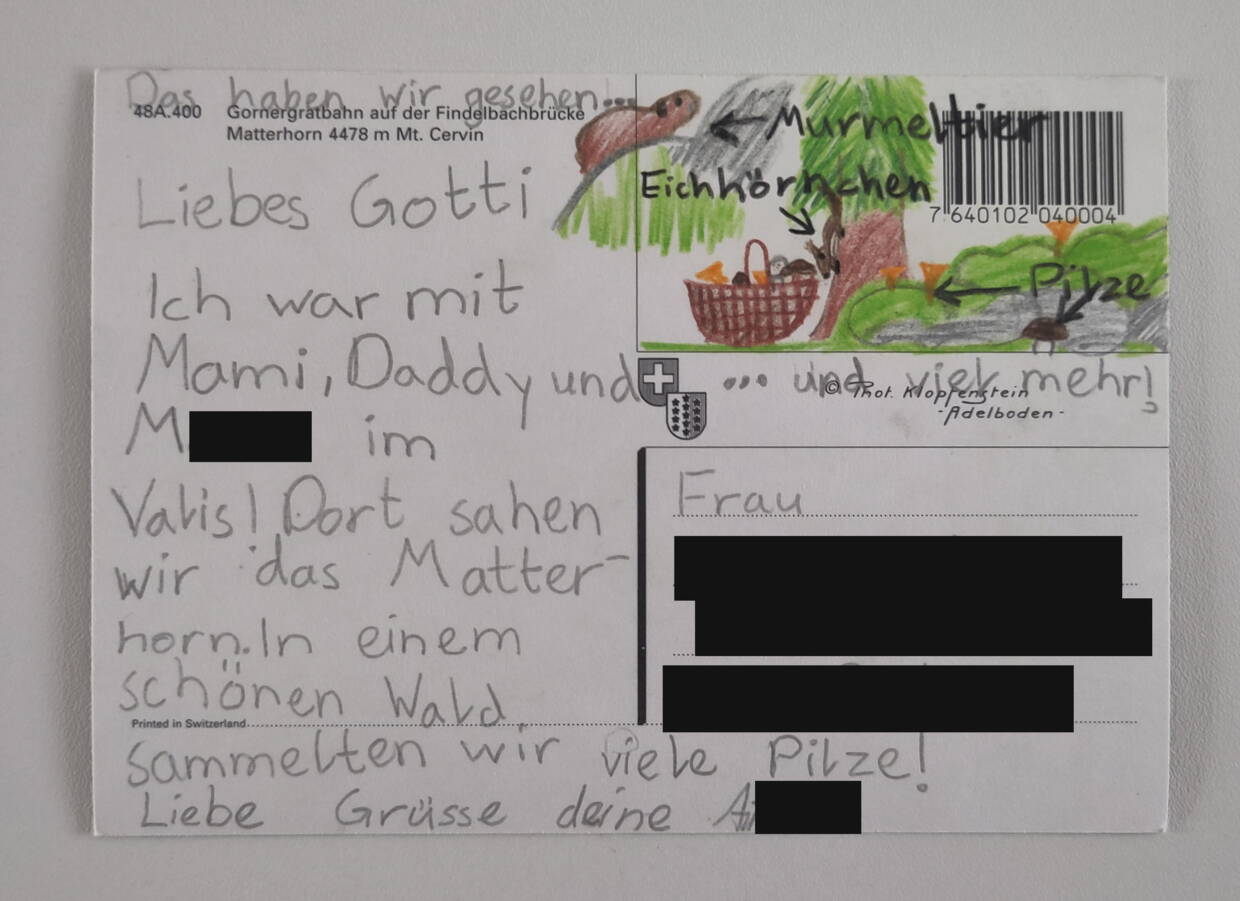 Das haben wir gesehen...
48A.400 Gornergratbahn auf der Findelbachbrücke
Matterhorn 4478 m Mt. Cervin
Liebes Gotti
Ich war mit
Mami, Daddy und
M im
Valis! Dort sahen
wir das Matter-
horn. In einem
schönen Wald
Printed in Switzerland
sammelten wir viele Pilze!
Liebe Grüsse deine A
Murmeltier
Eichhörnchen
7 640102 040004
Pilze
... und viel mehr!
© Phot. Klopfenstein
- Adelboden -
Frau